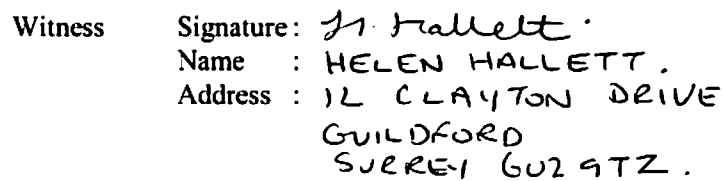 Witness Signature: H. Hallett.
Name : HELEN HALLETT.
Address : 12 CLAYTON DRIVE
GUILDFORD
SURREY GU2 9TZ.